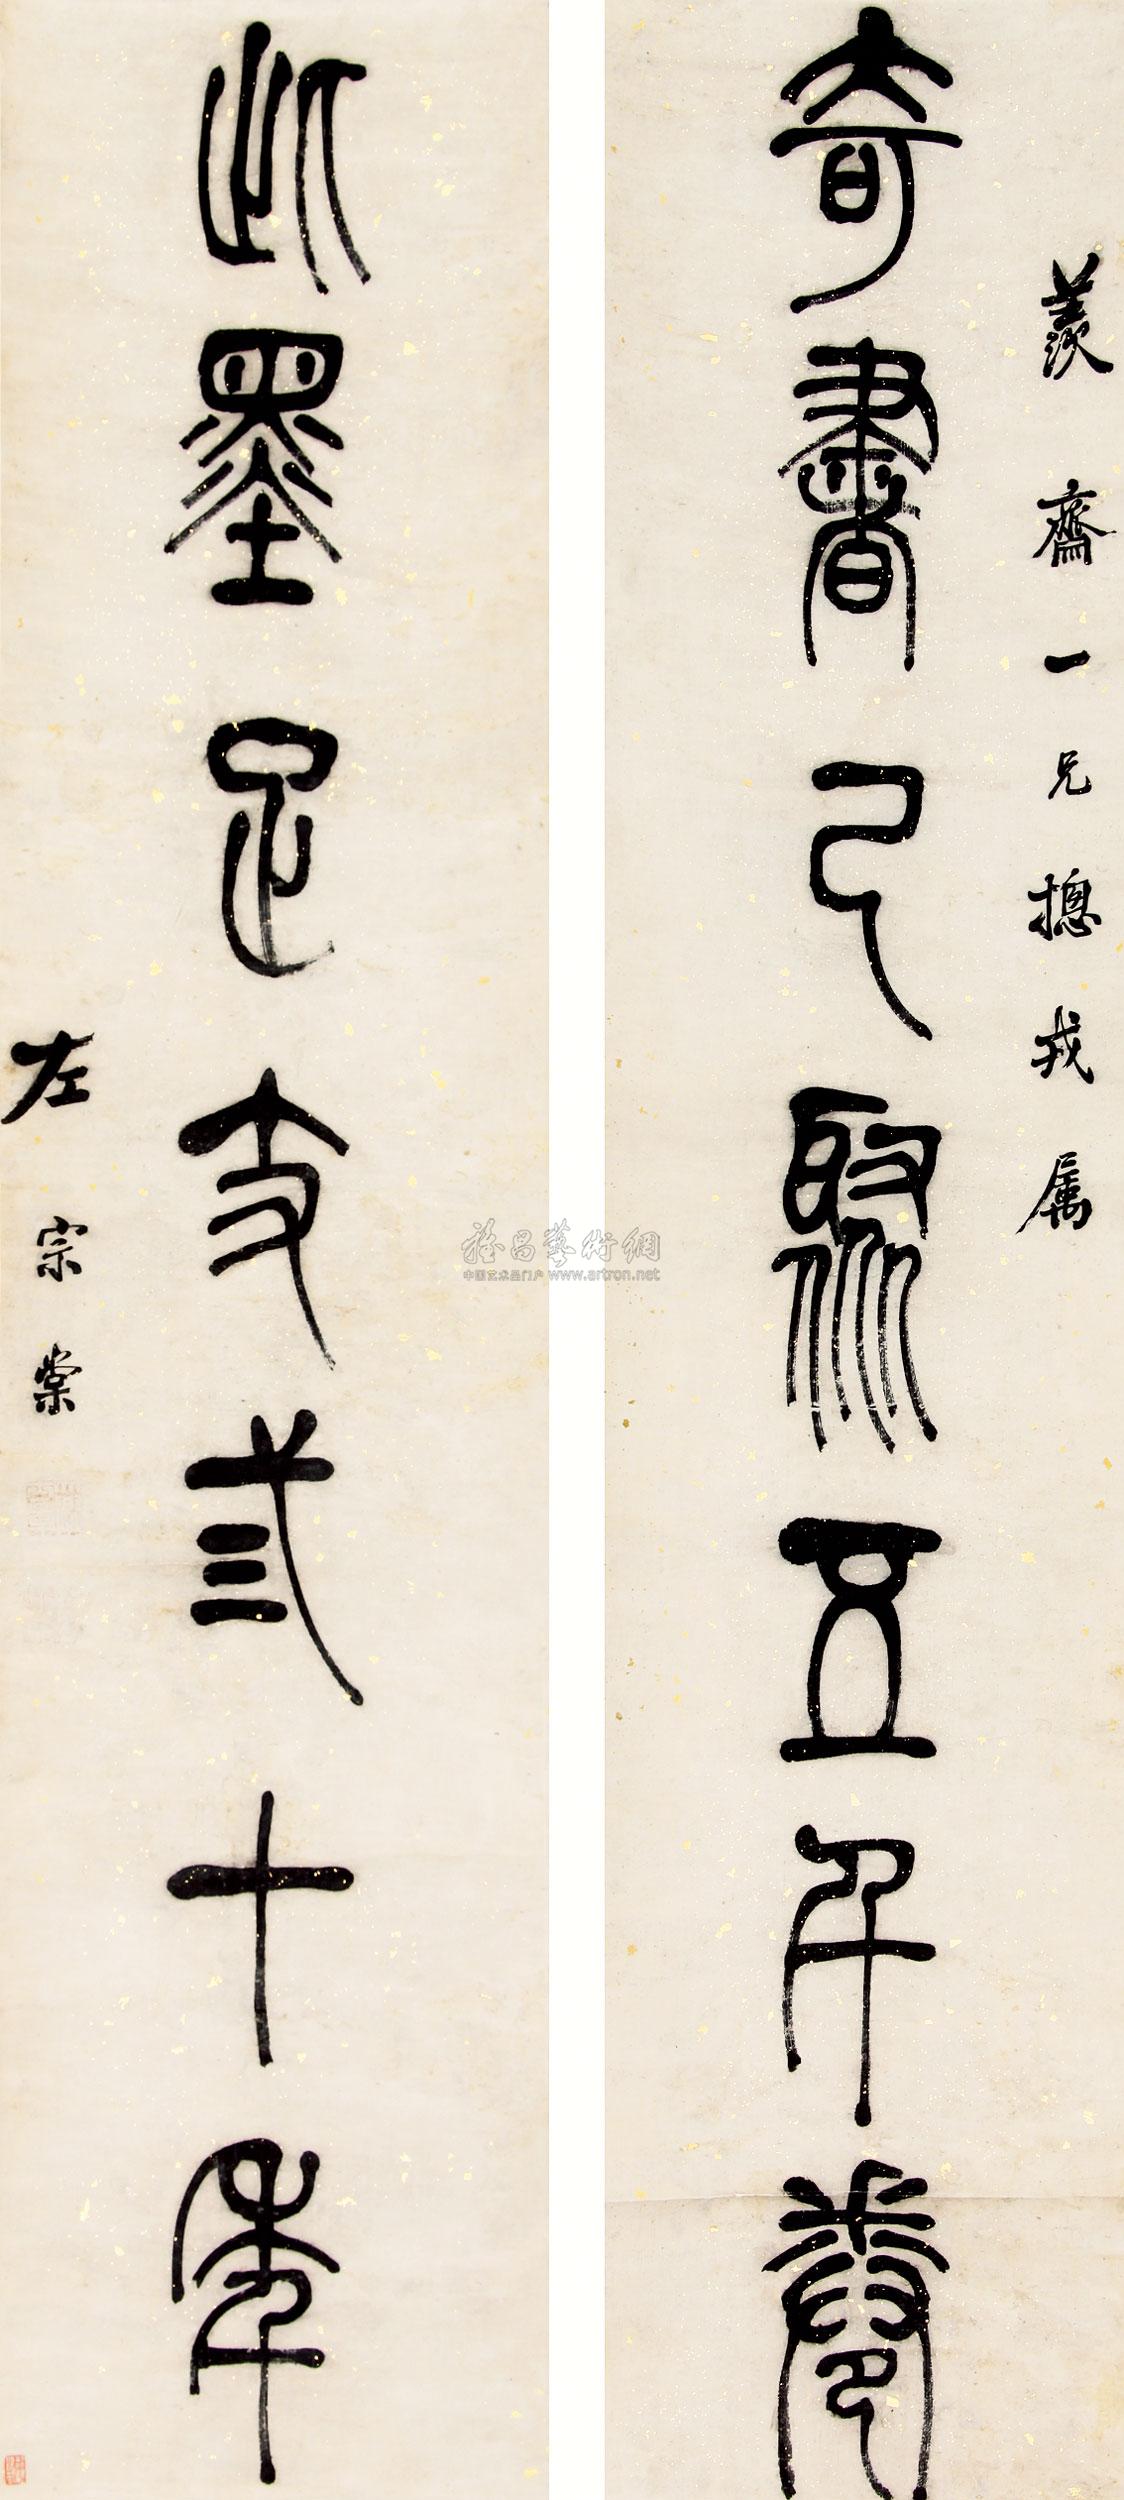 羨齋一兄摠戎属
奇書已聚五千卷
此墨足支弎十年
左宗棠
雅昌藝術網
中国艺术品门户 www.artron.net